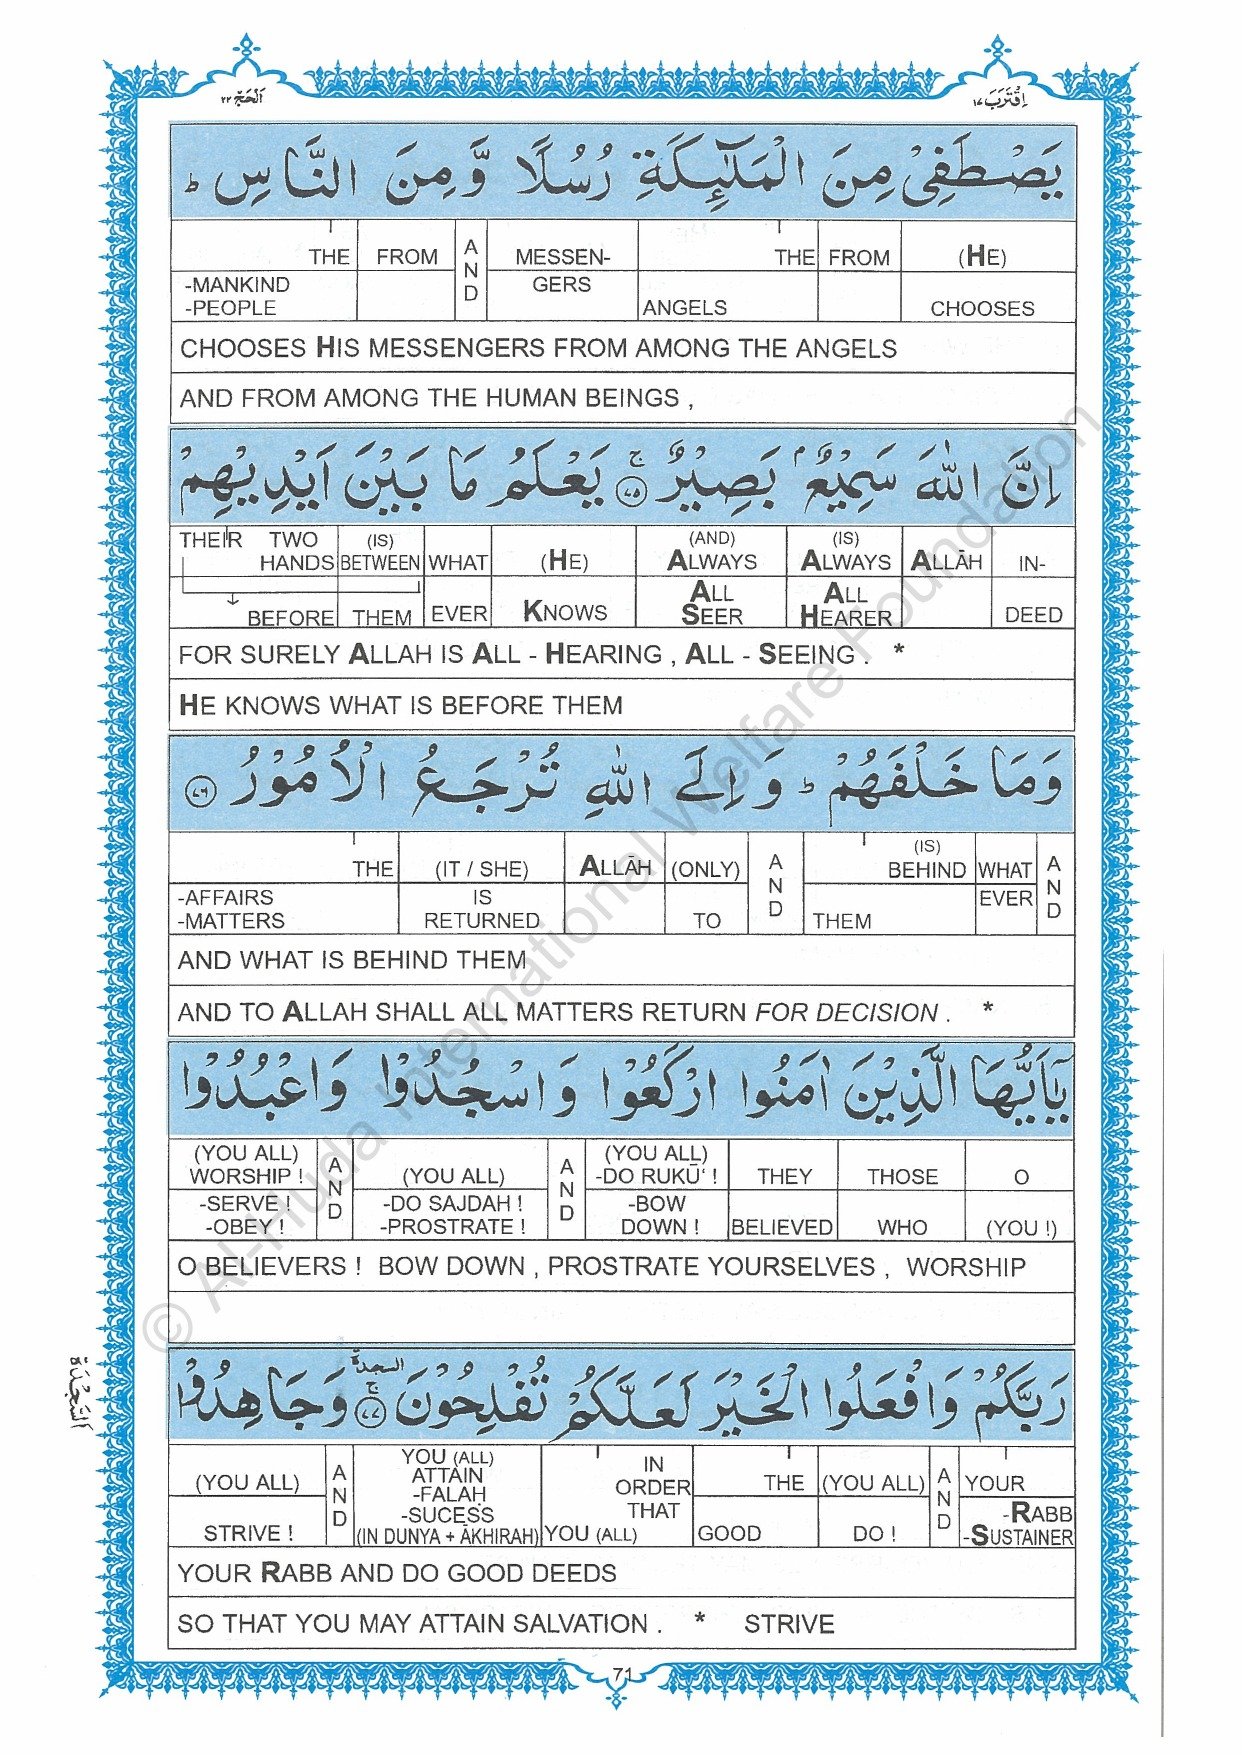 اَلْحَجّ ٢٢
اِقْتَرَبَ ١٧
يَصْطَفِىْ مِنَ الْمَلٰٓئِكَةِ رُسُلًا وَّ مِنَ النَّاسِ ؕ
THE FROM AND MESSEN- THE FROM (HE)
-MANKIND GERS
-PEOPLE ANGELS CHOOSES
CHOOSES HIS MESSENGERS FROM AMONG THE ANGELS
AND FROM AMONG THE HUMAN BEINGS ,
اِنَّ اللّٰهَ سَمِيْعٌۢ بَصِيْرٌ ۚ ٧٥ يَعْلَمُ مَا بَيْنَ اَيْدِيْهِمْ
THEIR TWO (IS) (AND) (IS)
HANDS BETWEEN WHAT (HE) ALWAYS ALWAYS ALLĀH IN-
ALL ALL
BEFORE THEM EVER KNOWS SEER HEARER DEED
FOR SURELY ALLAH IS ALL - HEARING , ALL - SEEING . *
HE KNOWS WHAT IS BEFORE THEM
وَمَا خَلْفَهُمْ ؕ وَ اِلَى اللّٰهِ تُرْجَعُ الْاُمُوْرُ ٧٦
(IS)
THE (IT / SHE) ALLĀH (ONLY) AND BEHIND WHAT AND
-AFFAIRS IS EVER
-MATTERS RETURNED TO THEM
AND WHAT IS BEHIND THEM
AND TO ALLAH SHALL ALL MATTERS RETURN FOR DECISION . *
يٰۤاَيُّهَا الَّذِيْنَ اٰمَنُوا ارْكَعُوْا وَ اسْجُدُوْا وَ اعْبُدُوْا
(YOU ALL) (YOU ALL)
WORSHIP ! AND (YOU ALL) AND -DO RUKŪ‘ ! THEY THOSE O
-SERVE ! -DO SAJDAH ! -BOW
-OBEY ! -PROSTRATE ! DOWN ! BELIEVED WHO (YOU !)
O BELIEVERS ! BOW DOWN , PROSTRATE YOURSELVES , WORSHIP
السجدة
رَبَّكُمْ وَ افْعَلُوا الْخَيْرَ لَعَلَّكُمْ تُفْلِحُوْنَ ۚ ٧٧ وَ جَاهِدُوْا
اَلسَّجْدَة
YOU (ALL) IN
(YOU ALL) AND ATTAIN ORDER THE (YOU ALL) AND YOUR
-FALAḤ THAT -RABB
-SUCESS
STRIVE ! (IN DUNYA + ĀKHIRAH) YOU (ALL) GOOD DO ! -SUSTAINER
YOUR RABB AND DO GOOD DEEDS
SO THAT YOU MAY ATTAIN SALVATION . * STRIVE
71
© Al-Huda International Welfare Foundation